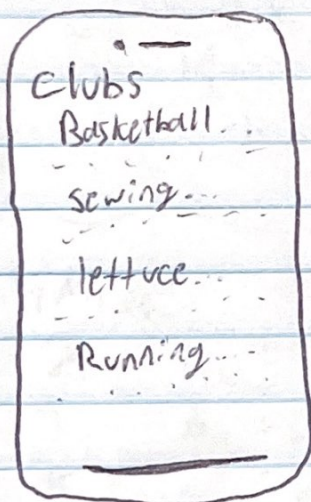 Clubs
Basketball...
sewing...
lettuce...
Running...